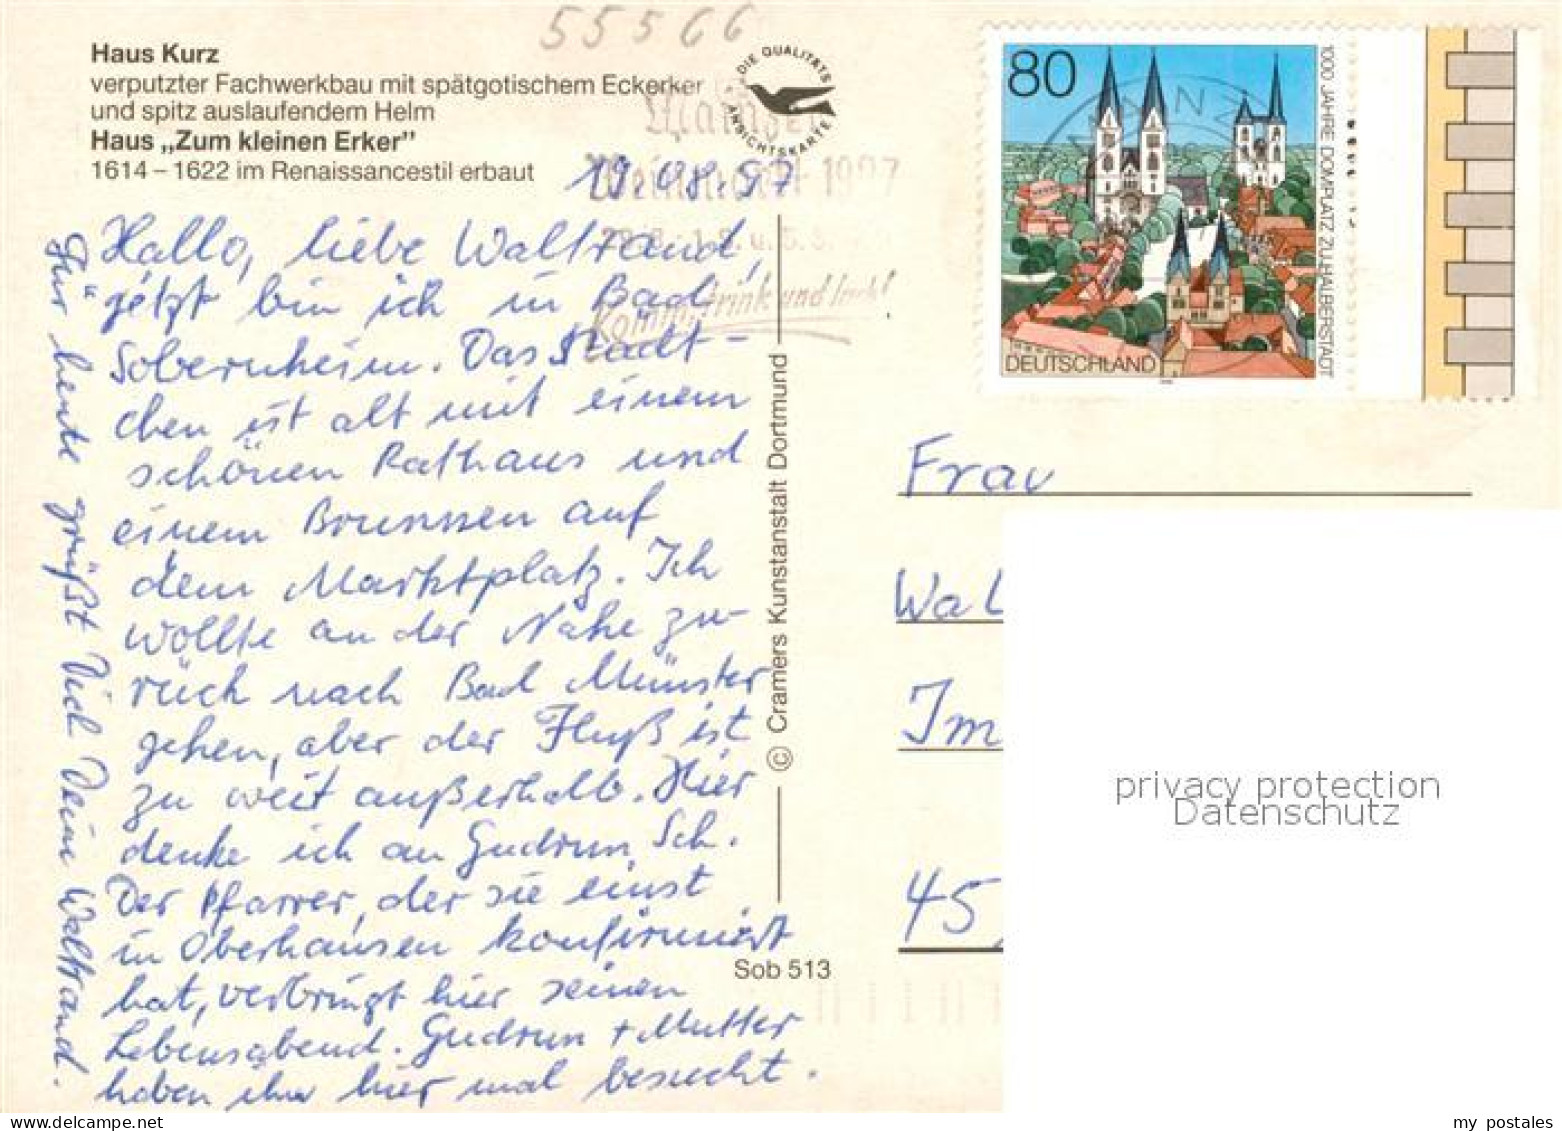 55566
Haus Kurz
verputzter Fachwerkbau mit spätgotischem Eckerker
und spitz auslaufendem Helm
Haus „Zum kleinen Erker”
1614 – 1622 im Renaissancestil erbaut
DIE QUALITÄTS
ANSICHTSKARTE
Mainzer
Weinmarkt 1997
Komm, trink und
19.08.97
Hallo, liebe Waltraud,
jetzt bin ich in Bad
Sobernheim. Das Städt-
chen ist alt mit einem
schönen Rathaus und
einem Brunnen auf
dem Marktplatz. Ich
wollte an der Nahe zu-
rück nach Bad Münster
gehen, aber der Fluß ist
zu weit außerhalb. Hier
denke ich an Gudrun Sch.
Der Pfarrer, der sie einst
in Oberhausen konfirmiert
hat, verbringt hier seinen
Lebensabend. Gudrun + Mutter
haben ihn hier mal besucht.
Für heute grüßt Dich Deine Waltraud.
© Cramers Kunstanstalt Dortmund
Sob 513
80
DEUTSCHLAND
1000 JAHRE DOMPLATZ ZU HALBERSTADT
MAINZ
Frau
Wal
Im
45
privacy protection
Datenschutz
delcampe.net
my_postales